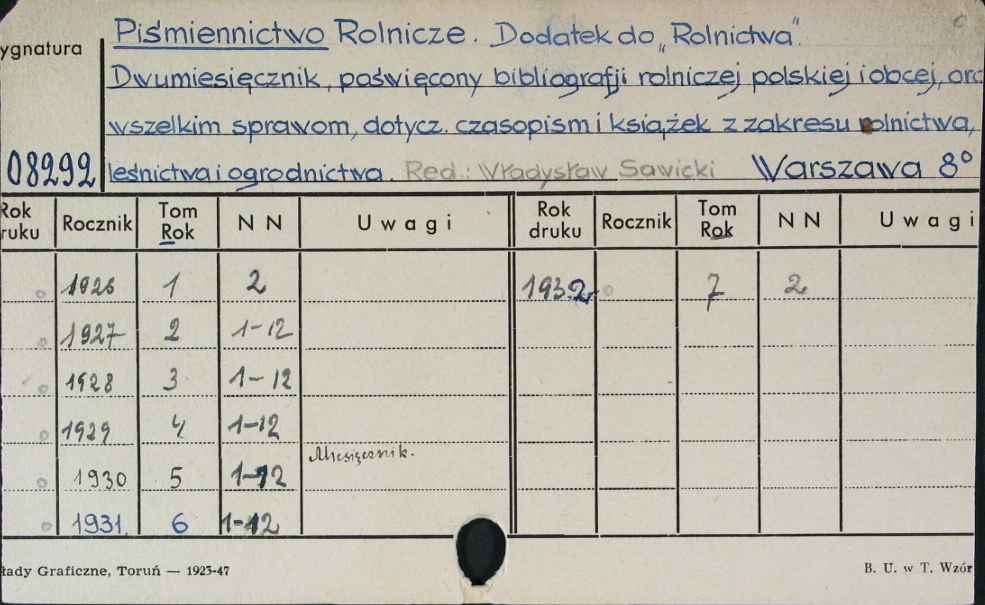 Piśmiennictwo Rolnicze. Dodatek do „Rolnictwa".
ygnatura
Dwumiesięcznik, poświęcony bibliografji rolniczej polskiej i obcej, orc
wszelkim sprawom, dotycz. czasopism i książek z zakresu rolnictwa,
08292 leśnictwa i ogrodnictwa. Red.: Władysław Sawicki Warszawa 8°
Rok ruku Rocznik Tom Rok N N Uwagi Rok druku Rocznik Tom Rok N N Uwagi
1926 1 2 1932 7 2
1927 2 1-12
1928 3 1-12
1929 4 1-12
Miesięcznik.
1930 5 1-12
1931. 6 1-12
łady Graficzne, Toruń — 1923-47 B. U. w T. Wzór